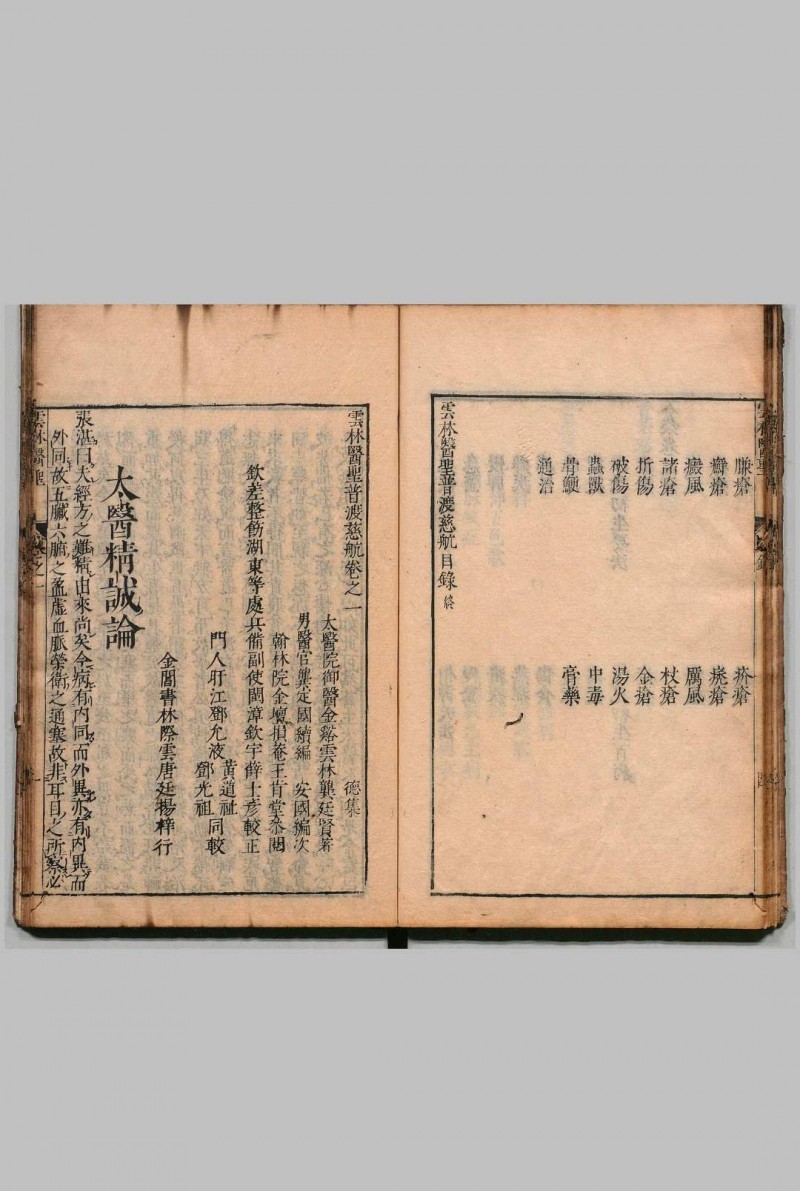 臁瘡 疥瘡
癬瘡 㿀瘡
癜風 厲風
諸瘡 杖瘡
折傷 金瘡
破傷 湯火
蟲獸 中毒
骨鯁 膏藥
通治
雲林醫聖普渡慈航目錄 終
雲林醫聖普渡慈航卷之一 德集
太醫院御醫金谿雲林龔廷賢著
男醫官龔定國續編 安國編次
翰林院金壇損菴王肯堂叅閱
欽差整飭湖東等處兵備副使閩漳欽宇薛士彥較正
黃道祉
門人盱江鄧允液 同較
鄧光祖
金閶書林際雲唐廷揚梓行
太醫精誠論
張湛曰夫經方之難精由來尚矣今病有內同而外異亦有內異而
外同故五臟六腑之盈虛血脈榮衛之通塞故非耳目之所察必
雲林醫聖 卷之一